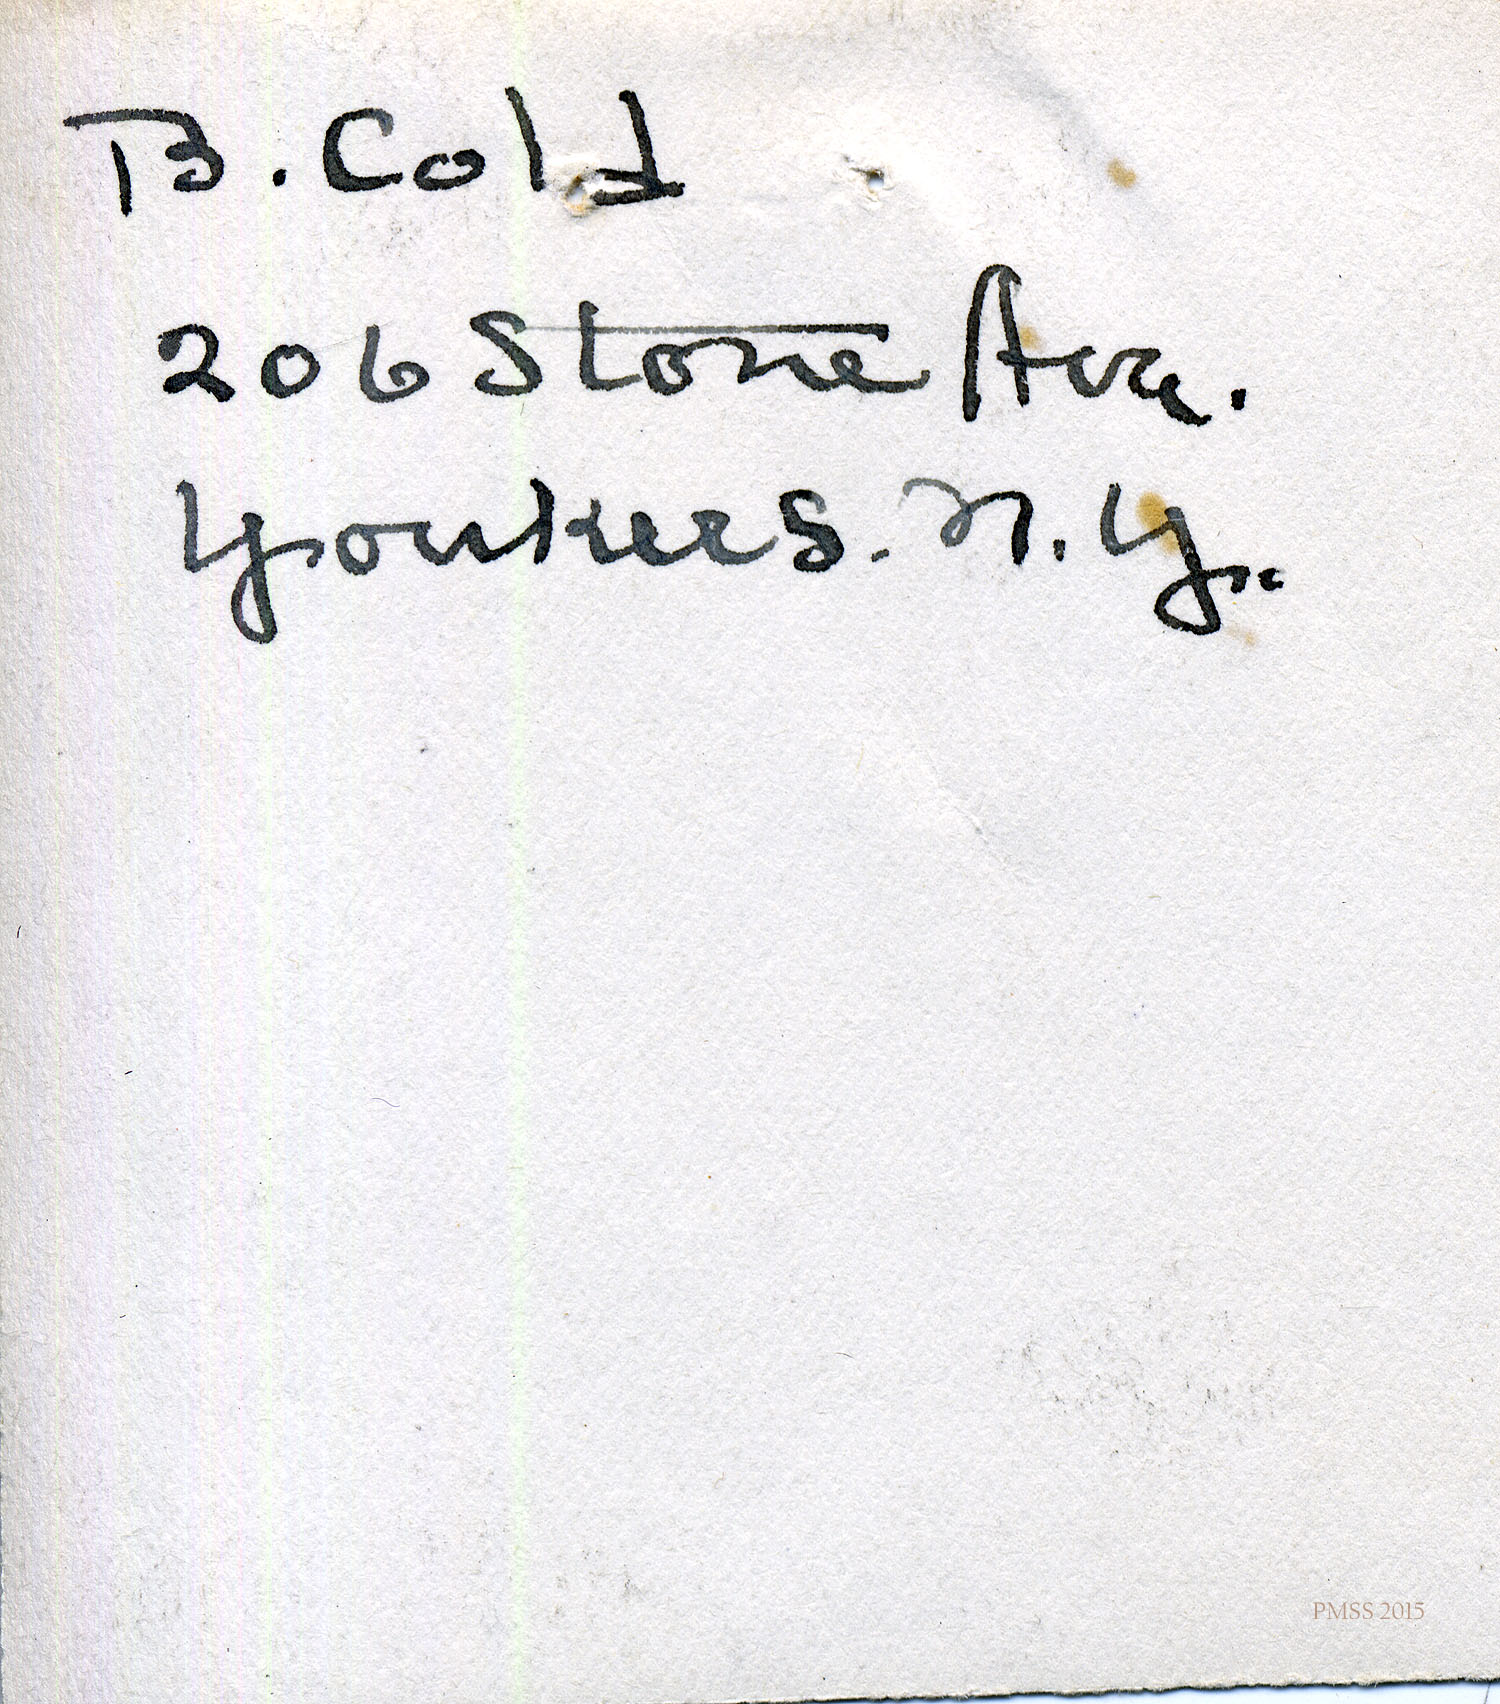 B. Cold
206 Stone Ave.
Yonkers. N.Y.
PMSS 2015